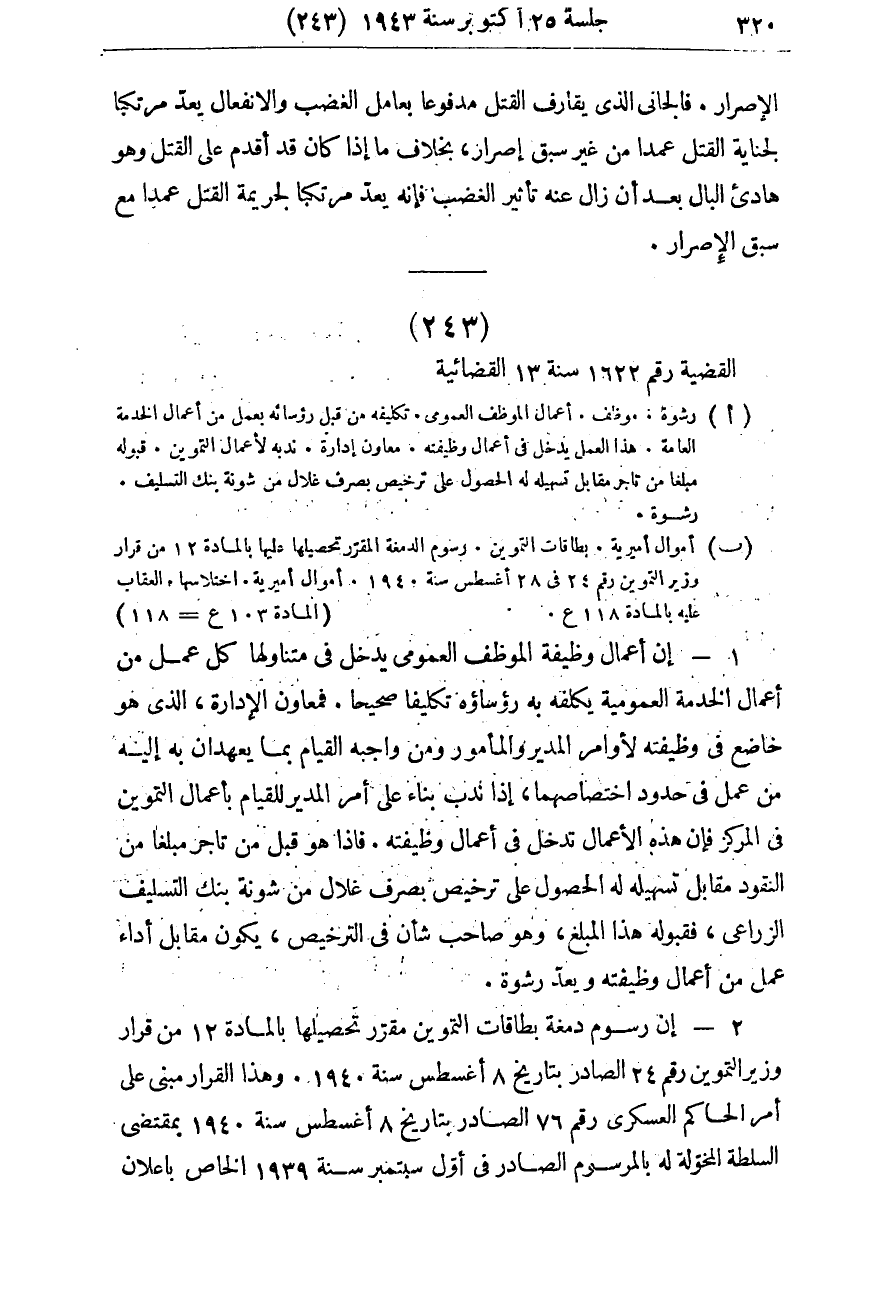 ٣٢٠ جلسة ٢٥ أكتوبر سنة ١٩٤٣ (٢٤٣)
الإصرار . فالجانى الذى يقارف القتل مدفوعا بعامل الغضب والانفعال يعدّ مرتكبا
لجناية القتل عمدا من غير سبق إصرار، بخلاف ما إذا كان قد أقدم على القتل وهو
هادئ البال بعد أن زال عنه تأثير الغضب فإنه يعدّ مرتكبا لجريمة القتل عمدا مع
سبق الإصرار .
(٢٤٣)
القضية رقم ١٦٢٢ سنة ١٣ القضائية
( أ ) رشوة : موظف . أعمال الموظف العمومى . تكليفه من قبل رؤسائه بعمل من أعمال الخدمة
العامة . هذا العمل يدخل فى أعمال وظيفته . معاون إدارة . ندبه لأعمال التموين . قبوله
مبلغا من تاجر مقابل تسهيله له الحصول على ترخيص بصرف غلال من شونة بنك التسليف .
رشوة .
(ب) أموال أميرية . بطاقات التموين . رسوم الدمغة المقرّر تحصيلها عليها بالمادة ١٢ من قرار
وزير التموين رقم ٢٤ فى ٢٨ أغسطس سنة ١٩٤٠ . أموال أميرية . اختلاسها . العقاب
عليه بالمادة ١١٨ ع . (المادة ١٠٣ ع = ١١٨)
١ — إن أعمال وظيفة الموظف العمومى يدخل فى متناولها كل عمل من
أعمال الخدمة العمومية يكلفه به رؤساؤه تكليفا صحيحا . فمعاون الإدارة ، الذى هو
خاضع فى وظيفته لأوامر المدير والمأمور ومن واجبه القيام بما يعهدان به إليه
من عمل فى حدود اختصاصهما، إذا ندب بناء على أمر المدير للقيام بأعمال التموين
فى المركز فإن هذه الأعمال تدخل فى أعمال وظيفته . فاذا هو قبل من تاجر مبلغا من
النقود مقابل تسهيله له الحصول على ترخيص بصرف غلال من شونة بنك التسليف
الزراعى ، فقبوله هذا المبلغ، وهو صاحب شأن فى الترخيص ، يكون مقابل أداء
عمل من أعمال وظيفته ويعدّ رشوة .
٢ — إن رسوم دمغة بطاقات التموين مقرّر تحصيلها بالمادة ١٢ من قرار
وزير التموين رقم ٢٤ الصادر بتاريخ ٨ أغسطس سنة ١٩٤٠ . وهذا القرار مبنى على
أمر الحاكم العسكرى رقم ٧٦ الصادر بتاريخ ٨ أغسطس سنة ١٩٤٠ بمقتضى
السلطة المخوّلة له بالمرسوم الصادر فى أوّل سبتمبر سنة ١٩٣٩ الخاص باعلان